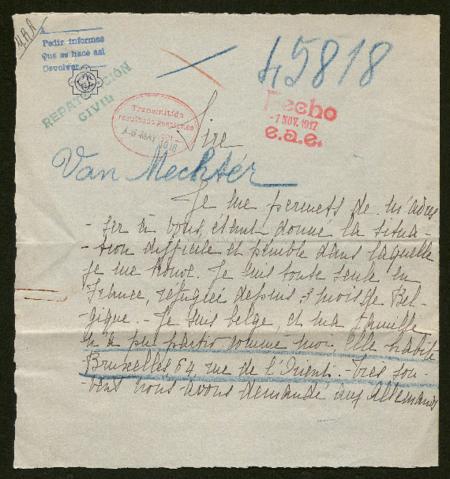 Pedir informes
que se hace así
Devolver
45818
REPATRIACIÓN
CIVIL
Transmitida
resultado
Hecho
-7 NOV. 1917
e.a.e.
Sire
Van Mechter
Je me permets de m'adres
-ser à vous, étant donné la situa-
-tion difficile et pénible dans laquelle
je me trouve. Je suis toute seule en
France, réfugiée depuis 3 mois de Bel-
gique. - Je suis belge, et ma famille
n'a pu partir comme moi. Elle habite
Bruxelles 64 rue de l'Orient. - Très sou-
-vent nous avons demandé aux Allemands